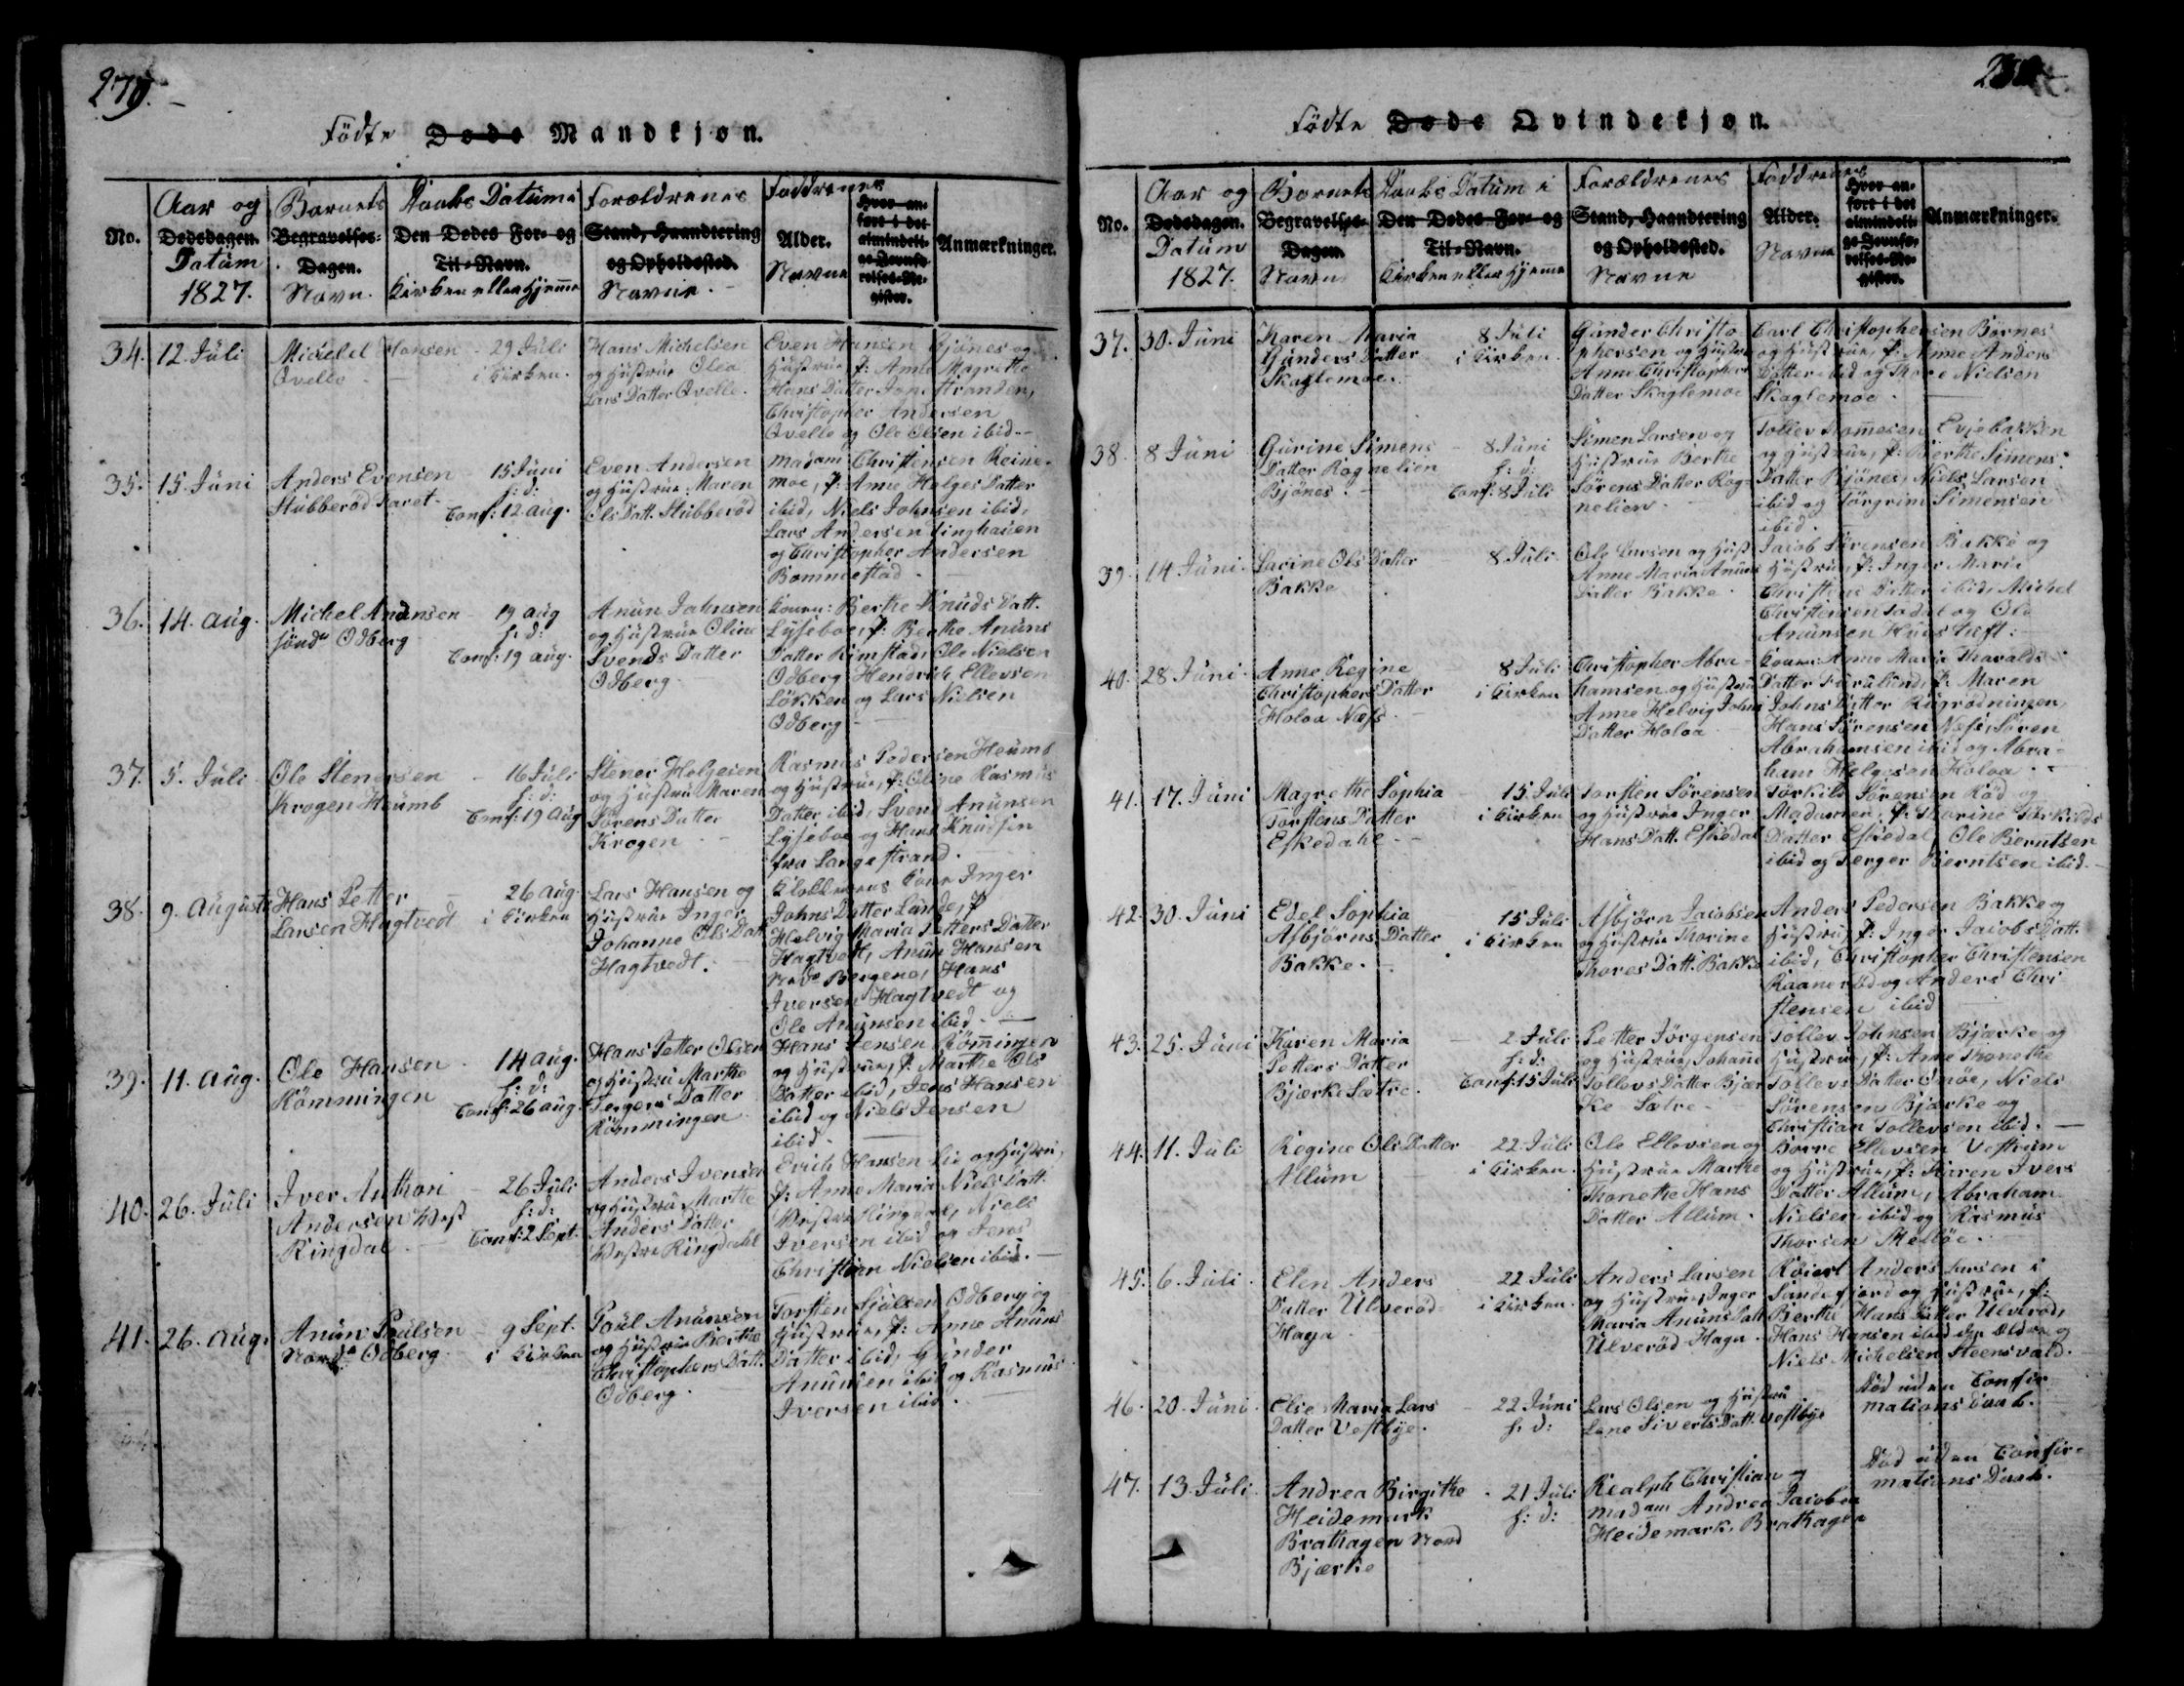 279.
Fødte Døde Mandkjøn.
No.
Aar og
Dødsdagen.
Datum
1827.
Barnets
Begravelses-
Dagen.
Navn.
Daabs Datum i
Den Dødes For- og
Til-Navn.
Kirken eller Hjemme
Forældrenes
Stand, Haandtering
og Opholdssted.
Navne
Faddrenes
Alder.
Navne
Hvor an-
ført i det
almindeli-
ge Jevnfø-
relses-Re-
gister.
Anmærkninger.
34. 12. Juli
Michel Hansen
Qvelle
29 Juli
i Kirken.
Hans Michelsen
og Hustrue Olea
Lars Datter Qvelle.
Even Hansen Bjönes og
Hustrue, P: Anne Magrethe
Hans Datter Jonsstranden,
Christopher Andersen
Qvelle og Ole Olsen ibid.
35. 15. Juni
Anders Evensen
Stubberöd Jaret
15 Juni
h: d:
Conf: 12 aug.
Even Andersen
og Hustrue Maren
Ols Datt. Stubberöd
Madam Christensen Reine-
moe, P: Anne Holges Datter
ibid, Niels Johnsen ibid,
Lars Andersen
og Christopher Andersen
Bommestad
36. 14. aug.
Michel Anunsen
Odberg
19 aug
h: d:
Conf: 19 aug.
Anun Johnsen
og Hustrue Oline
Svends Datter
Odberg
Konen: Berthe Knuds Datt.
Lyseboe, P: Berthe Anuns
Datter Rimstad, Ole Nielsen
Odberg Hendrich Ellevsen
Løkken og Lars Nielsen
Odberg
37. 5. Juli
Ole Stenersen
Krogen Heumb
16 Juli
h: d:
Conf: 19 aug
Stener Holgesen
og Hustrue Maren
Sørens Datter
Krogen
Rasmus Pedersen Heumb
og Hustrue, P: Oline Rasmus
Datter ibid, Svend Anunsen
Lyseboe og Hans Knudsen
fra Langestrand.
38. 9. Augusti
Hans Petter
Larsen Hagtvedt
26 aug.
i Kirken
Lars Hansen og
Hustrue Inger
Johanne Ols Datt.
Hagtvedt.
Klokkerens Kone Inger
Johns Datter Lunde, P
Helvig Maria Petters Datter
Hagtvedt, Anun Hansen
Bergene, Hans
Iversen Hagtvedt og
Ole Anunsen ibid.
39. 11. aug.
Ole Hansen
Römmingen
14 aug.
h: d:
Conf: 26 aug.
Hans Petter Olsen
og Hustrue Marthe
Datter
Römmingen
Hans Jensen Römmingen
og Hustrue, P: Marthe Ols
Datter ibid, Jens Hansen
ibid og Niels Jensen
ibid.
40. 26. Juli
Iver Anthon
Andersen Vest
Ringdal
26 Juli
h: d:
Conf: 2 Sept.
Anders Iversen
og Hustrue Marthe
Anders Datter
Vestre Ringdahl
Erich Hansen Lie og Hustrue,
P: Anne Maria Niels Datt.
Vestre Ringdal, Niels
Iversen ibid og Jens
Christian Nielsen ibid.
41. 26. Aug.
Anun Poulsen
Nord Odberg
9 Sept.
i Kirken
Poul Anunsen
og Hustrue Berthe
Christophers Datt.
Odberg.
Torsten Odberg og
Hustrue, P: Anne Anuns
Datter ibid, Gunder
Anunsen ibid og Rasmus
Iversen ibid.
280
Fødte Døde Qvindekjøn.
No.
Aar og
Dødsdagen.
Datum
1827.
Barnets
Begravelses-
Dagen.
Navn
Daabs Datum i
Den Dødes For- og
Til-Navn.
Kirken eller Hjemme
Forældrenes
Stand, Haandtering
og Opholdssted.
Navne
Faddrenes
Alder.
Navne
Hvor an-
ført i det
almindeli-
ge Jevnfø-
relses-Re-
gister.
Anmærkninger.
37. 30. Juni
Karen Maria
Gunders Datter
Skaglemoe
8 Juli
i Kirken.
Gunder Christo-
phersen og Hustrue
Anne Christophers
Datter Skaglemoe
Carl Christophersen Börnes
og Hustrue, P: Anne Anders
Datter ibid og Thore Nielsen
Skaglemoe.
38. 8 Juni
Gurine Simens
Datter Rognelien
Bjönes.
8 Juni
h: d:
Conf: 8 Juli
Simen Larsen og
Hustrue Berthe
Sörens Datter Rog-
nelien
Tollev Tommesen Evjebakken
og Hustrue, P: Berthe Simens
Datter Bjönes, Niels Larsen
ibid og Törgrim Simensen
ibid.
39. 14 Juni
Larine Ols Datter
Bakke
8 Juli
Ole Larsen og Hust
Anne Maria Anuns
Datter Bakke
Jacob Sörensen Bakke og
Hustrue, P: Inger Maria
Christens Datter ibid, Michel
Christensen og Ole
Anunsen
40. 28 Juni
Anne Regine
Christophers Datter
Holoa Næss
8 Juli
i Kirken
Christopher Abra-
hamsen og Hustrue
Anne Helvig Johns
Datter Holoa
Konen: Anne Maria Tharalds
Datter Furulund, P: Maren
Johns Datter Rugrödningen,
Hans Sörensen Næss, Sören
Abrahamsen ibid og Abra-
ham Helgesen Holoa.
41. 17. Juni
Magrethe Sophia
Torstens Datter
Eskedahl
15 Juli
i Kirken
Torsten Sörensen
og Hustrue Inger
Hans Datt. Eskedal
Törkild Sörensen Röd og
Madamen, P: Thorine Törkilds
Datter Eskedal, Ole Berntsen
ibid og Terger Berntsen ibid.
42. 30. Juni
Edel Sophia
Asbjörns Datter
Bakke.
15 Juli
i Kirken
Asbjörn Jacobsen
og Hustrue Thorine
Thores Datt. Bakke
Anders Pedersen Bakke og
Hustrue, P: Inger Jacobs Datt.
ibid, Christopher Christensen
Raaneröd og Anders Chri-
stensen ibid
43. 25. Juni
Karen Maria
Petters Datter
Bjærke Sætre.
2 Juli
h: d:
Conf: 15 Juli
Petter Jörgensen
og Hustrue Johanne
Tollevs Datter Bjær-
ke Sætre
Tollev Johnsen Bjærke og
Hustrue, P: Anne Thonethe
Tollevs Datter Omöe, Niels
Sörensen Bjærke og
Christian Tollevsen ibid.
44. 11. Juli
Regine Ols Datter
Allum
22. Juli
i Kirken.
Ole Ellevsen og
Hustrue Marthe
Thonethe Hans
Datter Allum.
Borre Ellevsen Vestrum
og Hustrue, P: Karen Ivers
Datter Allum, Abraham
Nielsen ibid og Rasmus
Thorsen Melløe.
45. 6. Juli
Elen Anders
Datter Ulveröd
Haga
22 Juli
i Kirken.
Anders Larsen
og Hustrue, Inger
Maria Anuns Datt
Ulveröd Haga
Anders Larsen i
Sandefiord og Hustrue, P:
Berthe Hans Datter Ulveröd,
Hans Hansen ibid den Ældre og
Niels Michelsen Steensvald.
46. 20. Juni
Elie Maria Lars
Datter Vestbye.
22 Juni
h. d:
Lars Olsen og Hustrue
Lene Siverts Datt. Vestbye
Död uden Confir-
mations Daab.
47. 13. Juli
Andrea Birgithe
Heidemark
Brathagen Nord
Bjærke
21 Juli
h: d:
Realph Christian og
Madam Andrea Jacobea
Heidemark, Brathagen
Död uden Confir-
mations Daab.